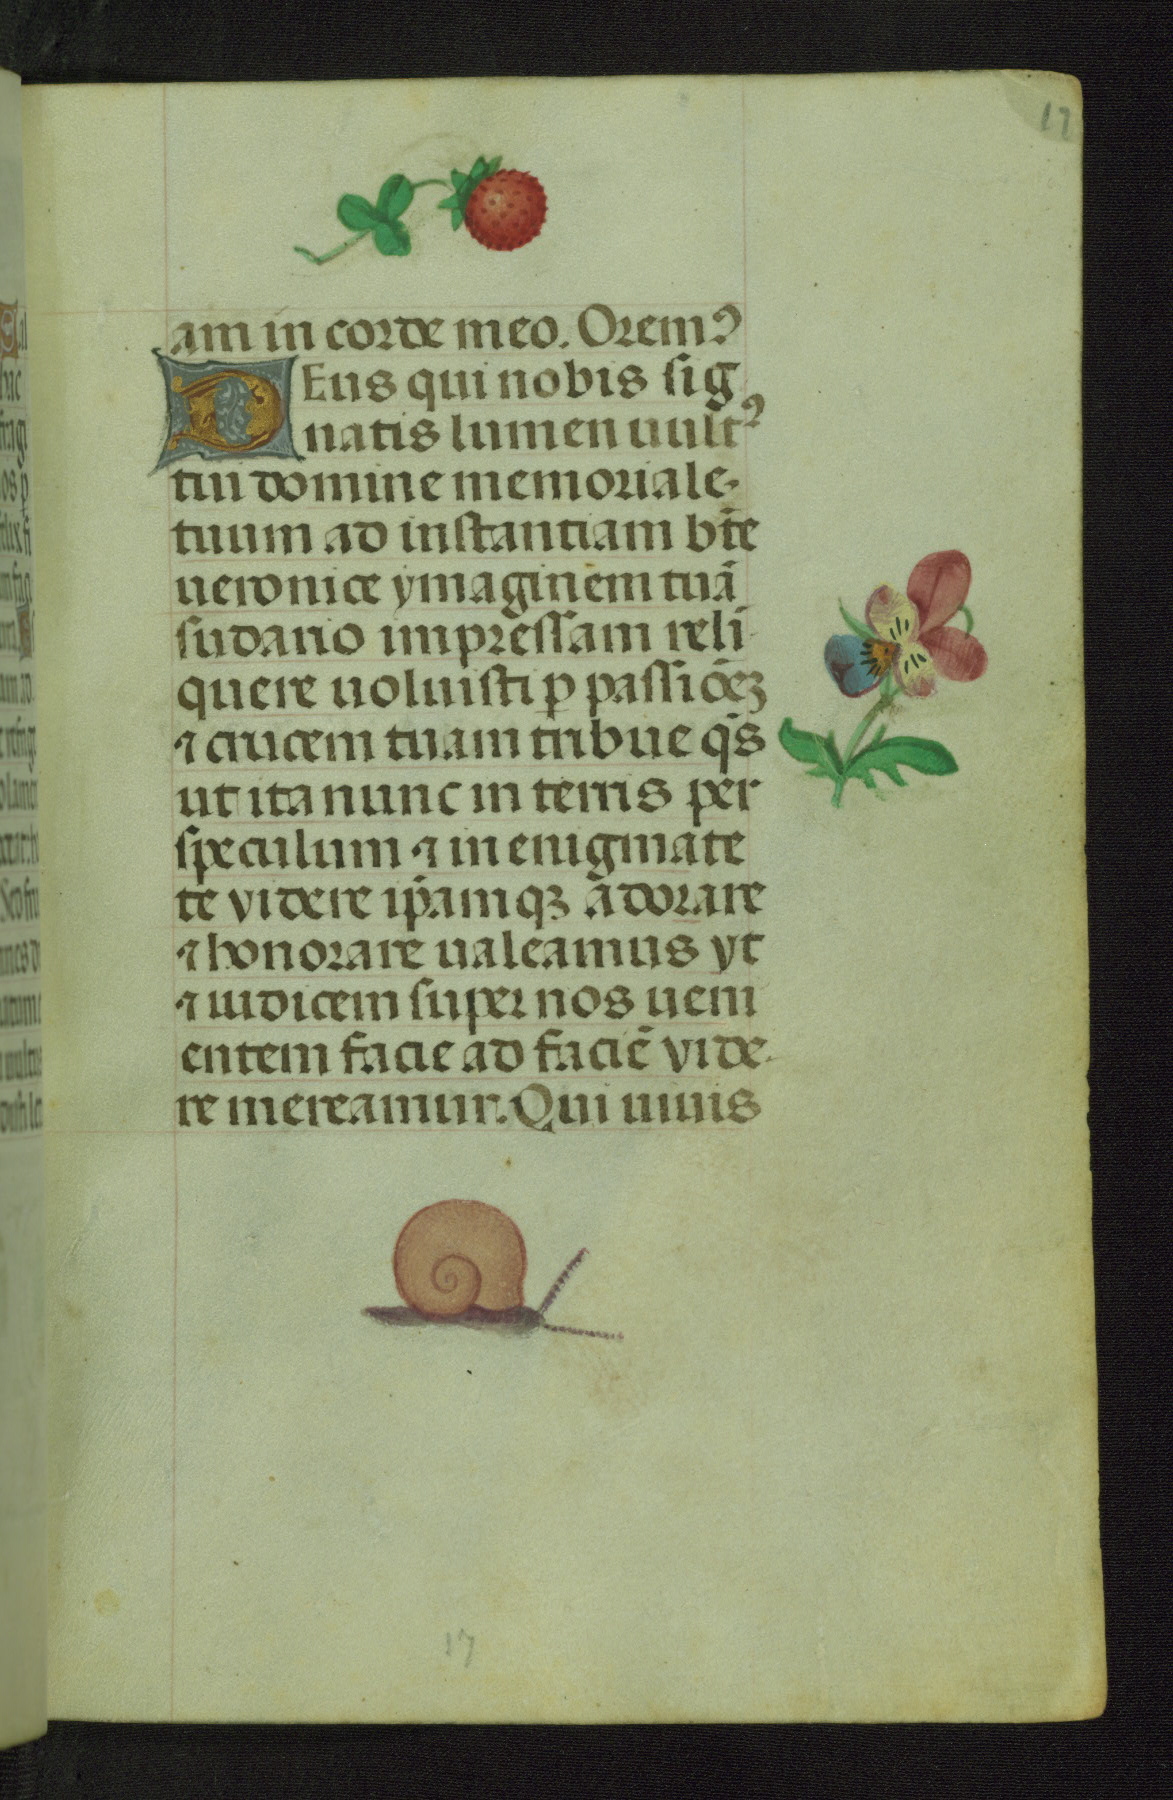 17
am in corde meo. Oremꝰ
DEus qui nobis sig
natis lumen uultꝰ
tui domine memoriale
tuum ad instantiam bt̄e
ueronice ymaginem tuā
sudario impressam reli
quere uoluisti ꝑ passiōeꝫ
⁊ crucem tuam tribue q̄s
ut ita nunc in terris per
speculum ⁊ in enigmate
te videre ip̄amqꝫ adorare
⁊ honorare ualeamus yt
⁊ iudicem super nos ueni
entem facie ad faciē vide
re mereamur. Qui uiuis
17